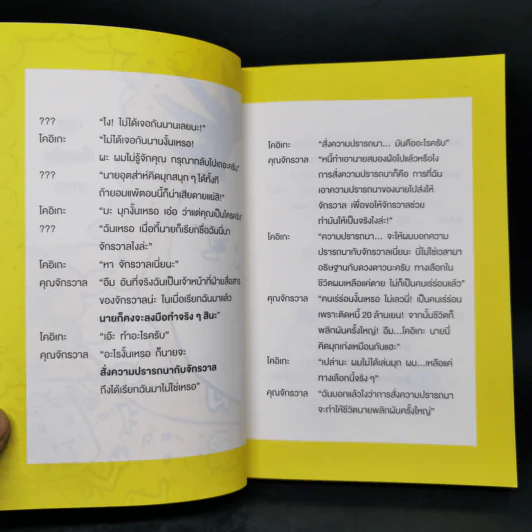 ??? "ไง! ไม่ได้เจอกันนานเลยนะ!"
โคอิเกะ: "ไม่ได้เจอกันนานงั้นเหรอ!
ผะ ผมไม่รู้จักคุณ กรุณากลับไปเถอะครับ"
??? "นายอุตส่าห์คิดมุกสนุก ๆ ได้ทั้งที
ถ้ายอมแพ้ตอนนี้ก็น่าเสียดายแย่สิ!"
โคอิเกะ: "มะ มุกงั้นเหรอ เอ่อ ว่าแต่คุณเป็นใครครับ"
??? "ฉันเหรอ เมื่อกี้นายก็เรียกชื่อฉันนี่นา
จักรวาลไงล่ะ"
โคอิเกะ: "หา จักรวาลเนี่ยนะ"
คุณจักรวาล "อืม อันที่จริงฉันเป็นเจ้าหน้าที่ฝ่ายสื่อสาร
ของจักรวาลน่ะ ในเมื่อเรียกฉันมาแล้ว
นายก็คงจะลงมือทำจริง ๆ สินะ"
โคอิเกะ: "เอ๊ะ ทำอะไรครับ"
คุณจักรวาล "อะไรงั้นเหรอ ก็นายจะ
สั่งความปรารถนากับจักรวาล
ถึงได้เรียกฉันมาไม่ใช่เหรอ"
โคอิเกะ: "สั่งความปรารถนา... มันคืออะไรครับ"
คุณจักรวาล "หนี้ทำเอานายสมองฝ่อไปแล้วหรือไง
การสั่งความปรารถนาก็คือ การที่ฉัน
เอาความปรารถนาของนายไปส่งให้
จักรวาล เพื่อขอให้จักรวาลช่วย
ทำมันให้เป็นจริงไงล่ะ!"
โคอิเกะ: "ความปรารถนา... จะให้ผมบอกความ
ปรารถนากับจักรวาลเนี่ยนะ นี่ไม่ใช่เวลามา
อธิษฐานกับดวงดาวนะครับ ทางเลือกใน
ชีวิตผมเหลือแค่ตาย ไม่ก็เป็นคนเร่ร่อนแล้ว"
คุณจักรวาล "คนเร่ร่อนงั้นเหรอ ไม่เลวนี่! เป็นคนเร่ร่อน
เพราะติดหนี้ 20 ล้านเยน! จากนั้นชีวิตก็
พลิกผันครั้งใหญ่! อืม...โคอิเกะ นายนี่
คิดมุกเก่งเหมือนกันแฮะ"
โคอิเกะ: "เปล่านะ ผมไม่ได้เล่นมุก ผม...เหลือแค่
ทางเลือกนี้จริง ๆ"
คุณจักรวาล "ฉันบอกแล้วไงว่าการสั่งความปรารถนา
จะทำให้ชีวิตนายพลิกผันครั้งใหญ่"